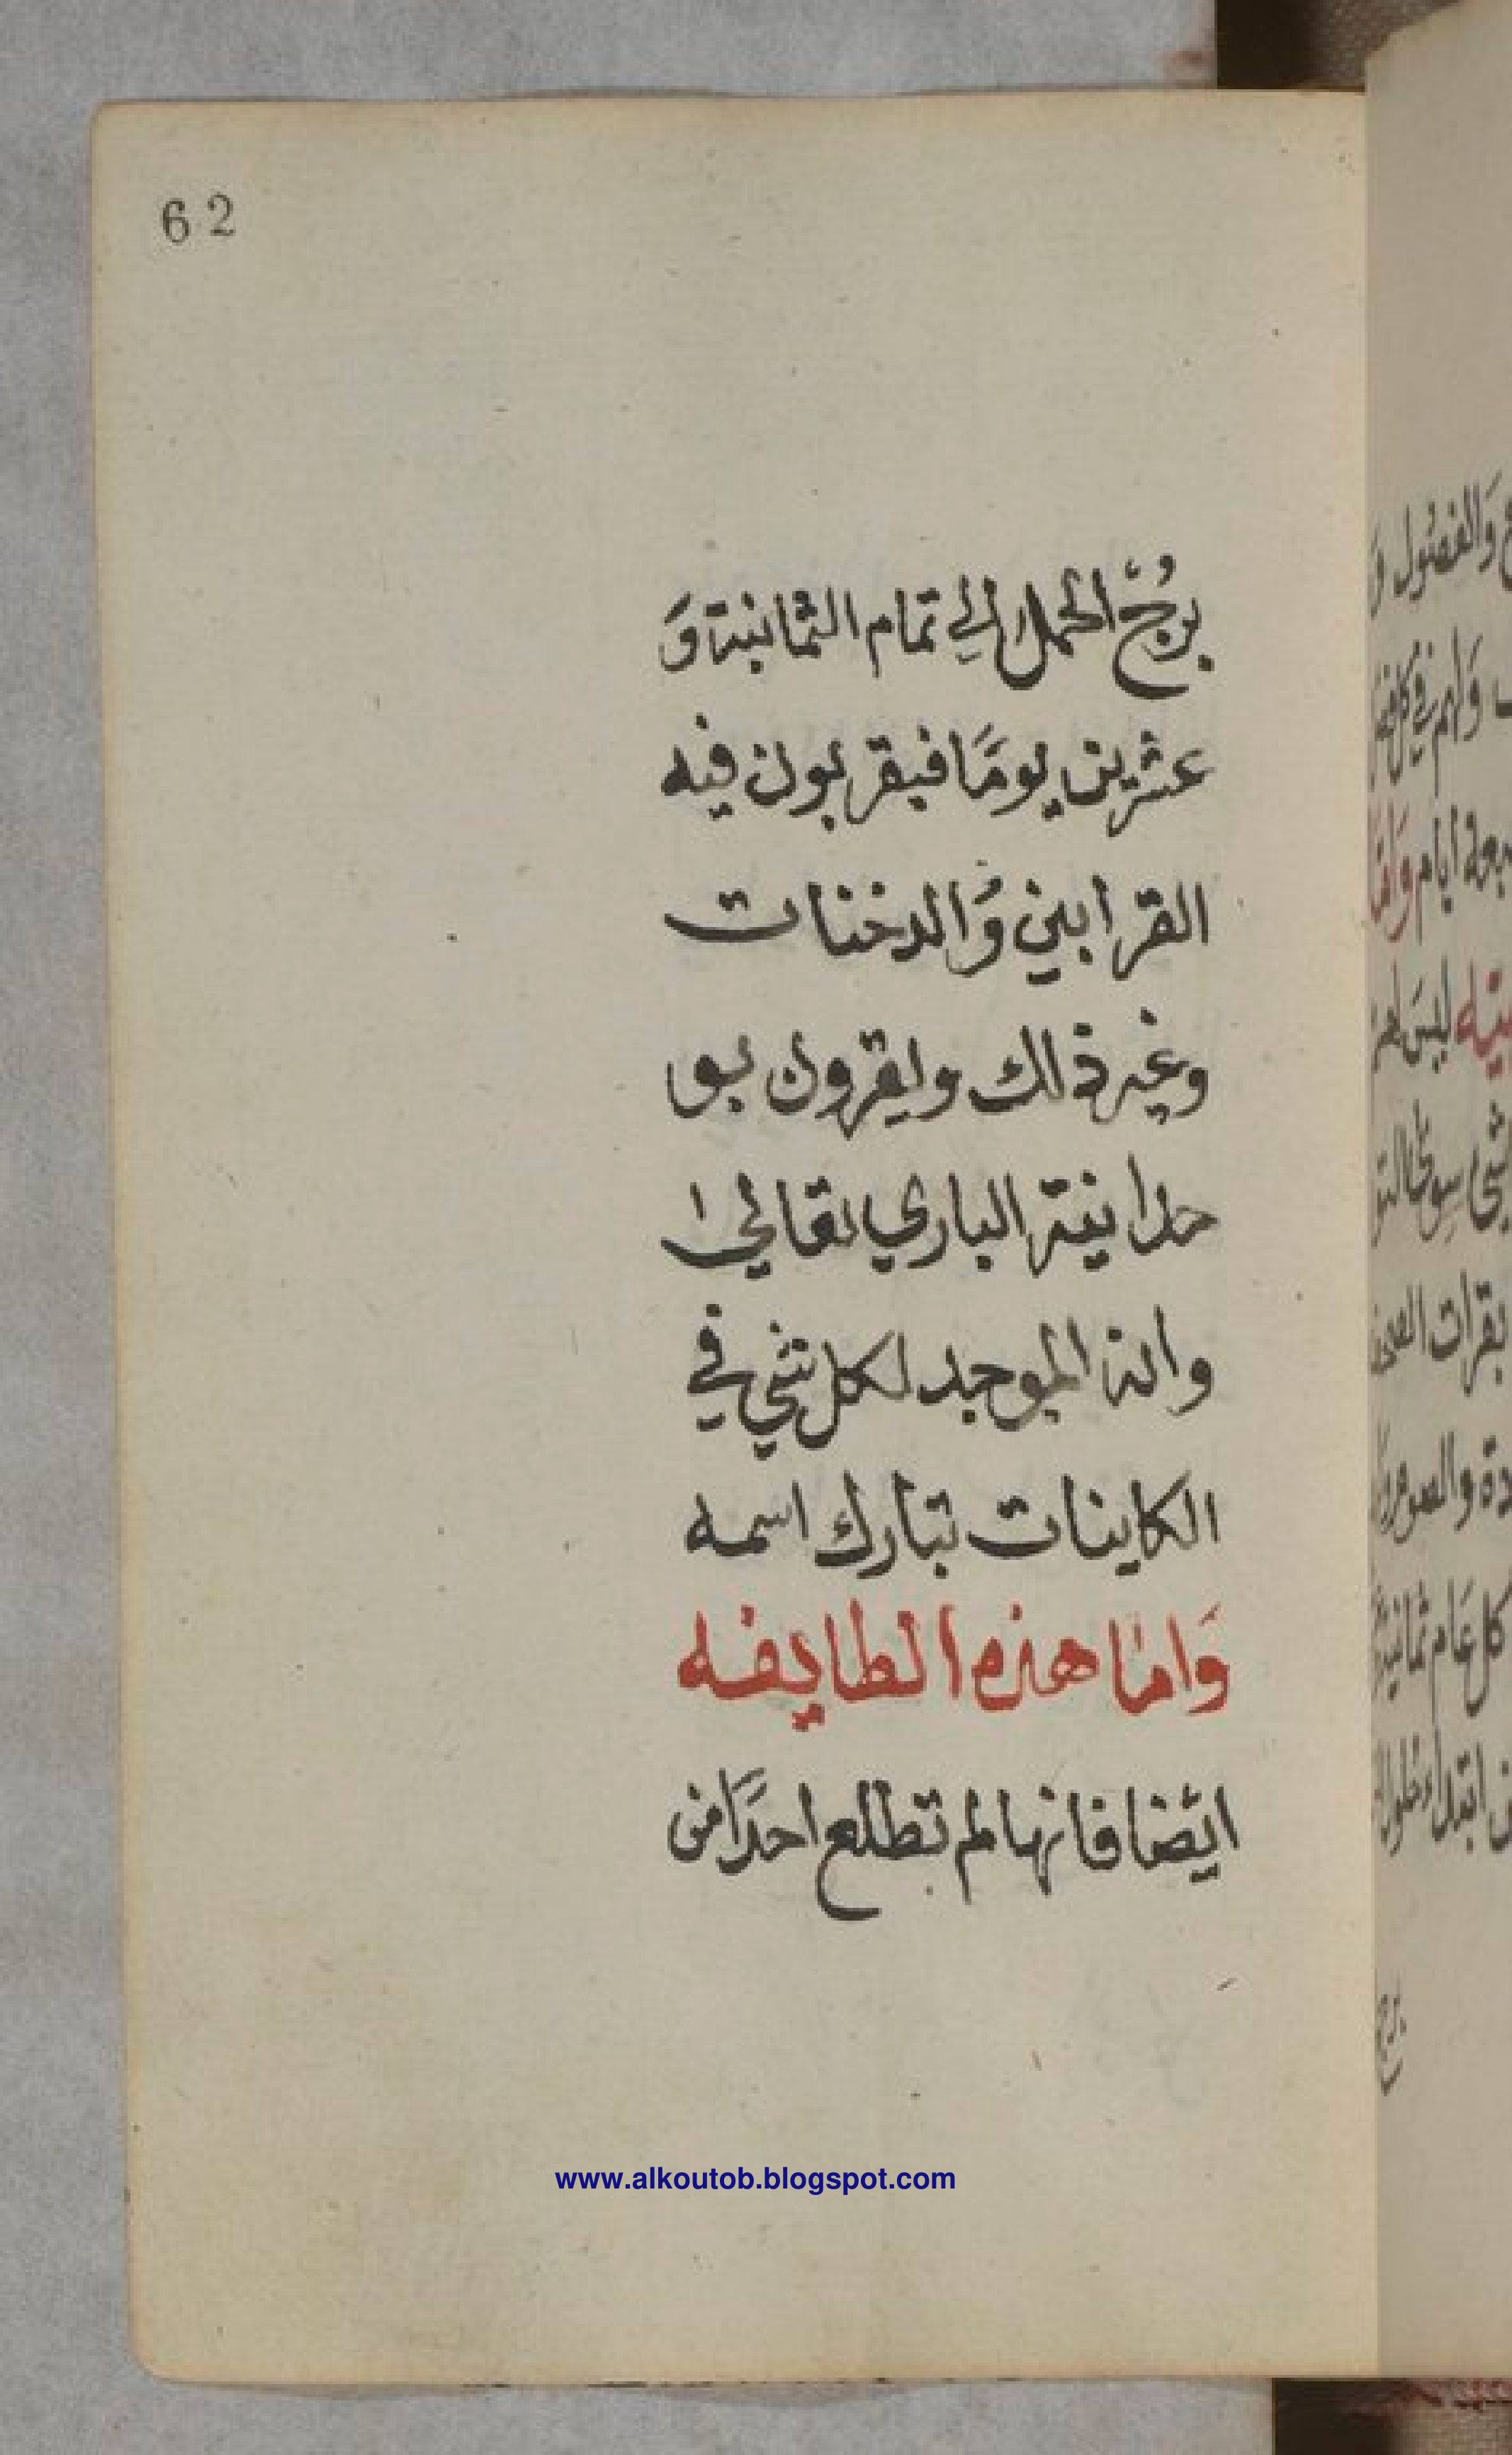 62
برُجْ الحمل الي تمام الثمانية وَ
عشرين يومًا فيقربون فيه
القرابين وَالدخنات
وغير ذلك ويقرون بو
حدانية الباري تعالي ا
وانه الموجد لكل شي في
الكاينات تبارك اسمه
وَاما هذه الطايفه
ايضا فانها لم تطلع احدًا من
www.alkoutob.blogspot.com